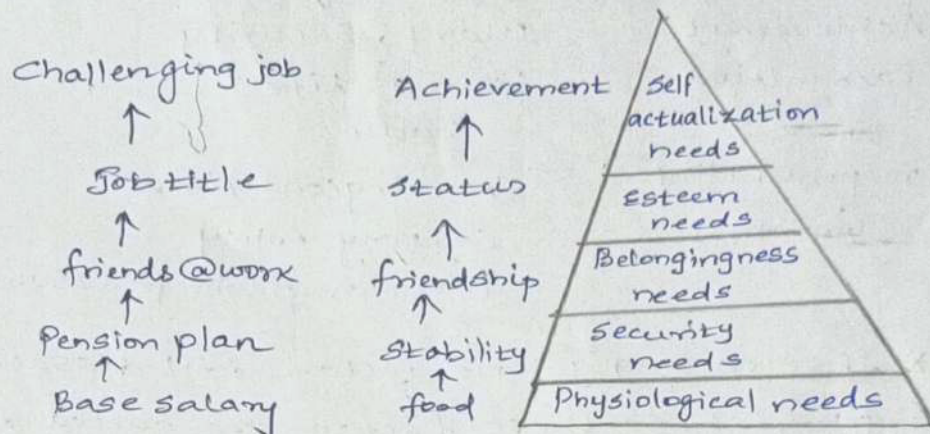 Challenging job
Job title
friends@work
Pension plan
Base salary
Achievement
Status
friendship
Stability
food
Self
actualization
needs
Esteem
needs
Belongingness
needs
Security
needs
Physiological needs